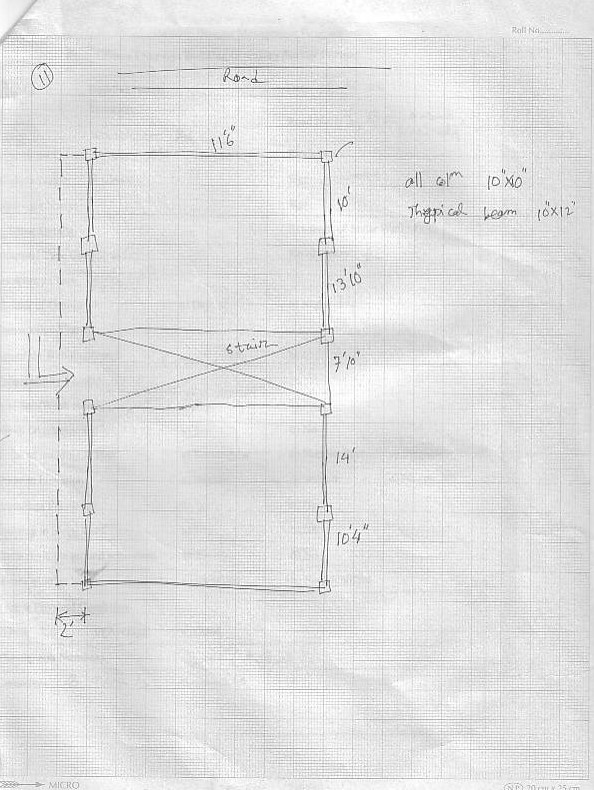 Roll No............
11
Road
11'6"
all colm 10"x10"
Thypical beam 10"x12"
10'
13'10"
stair
7'10"
14'
10'4"
2'
MICRO
(N.P.) 20 cm x 25 cm